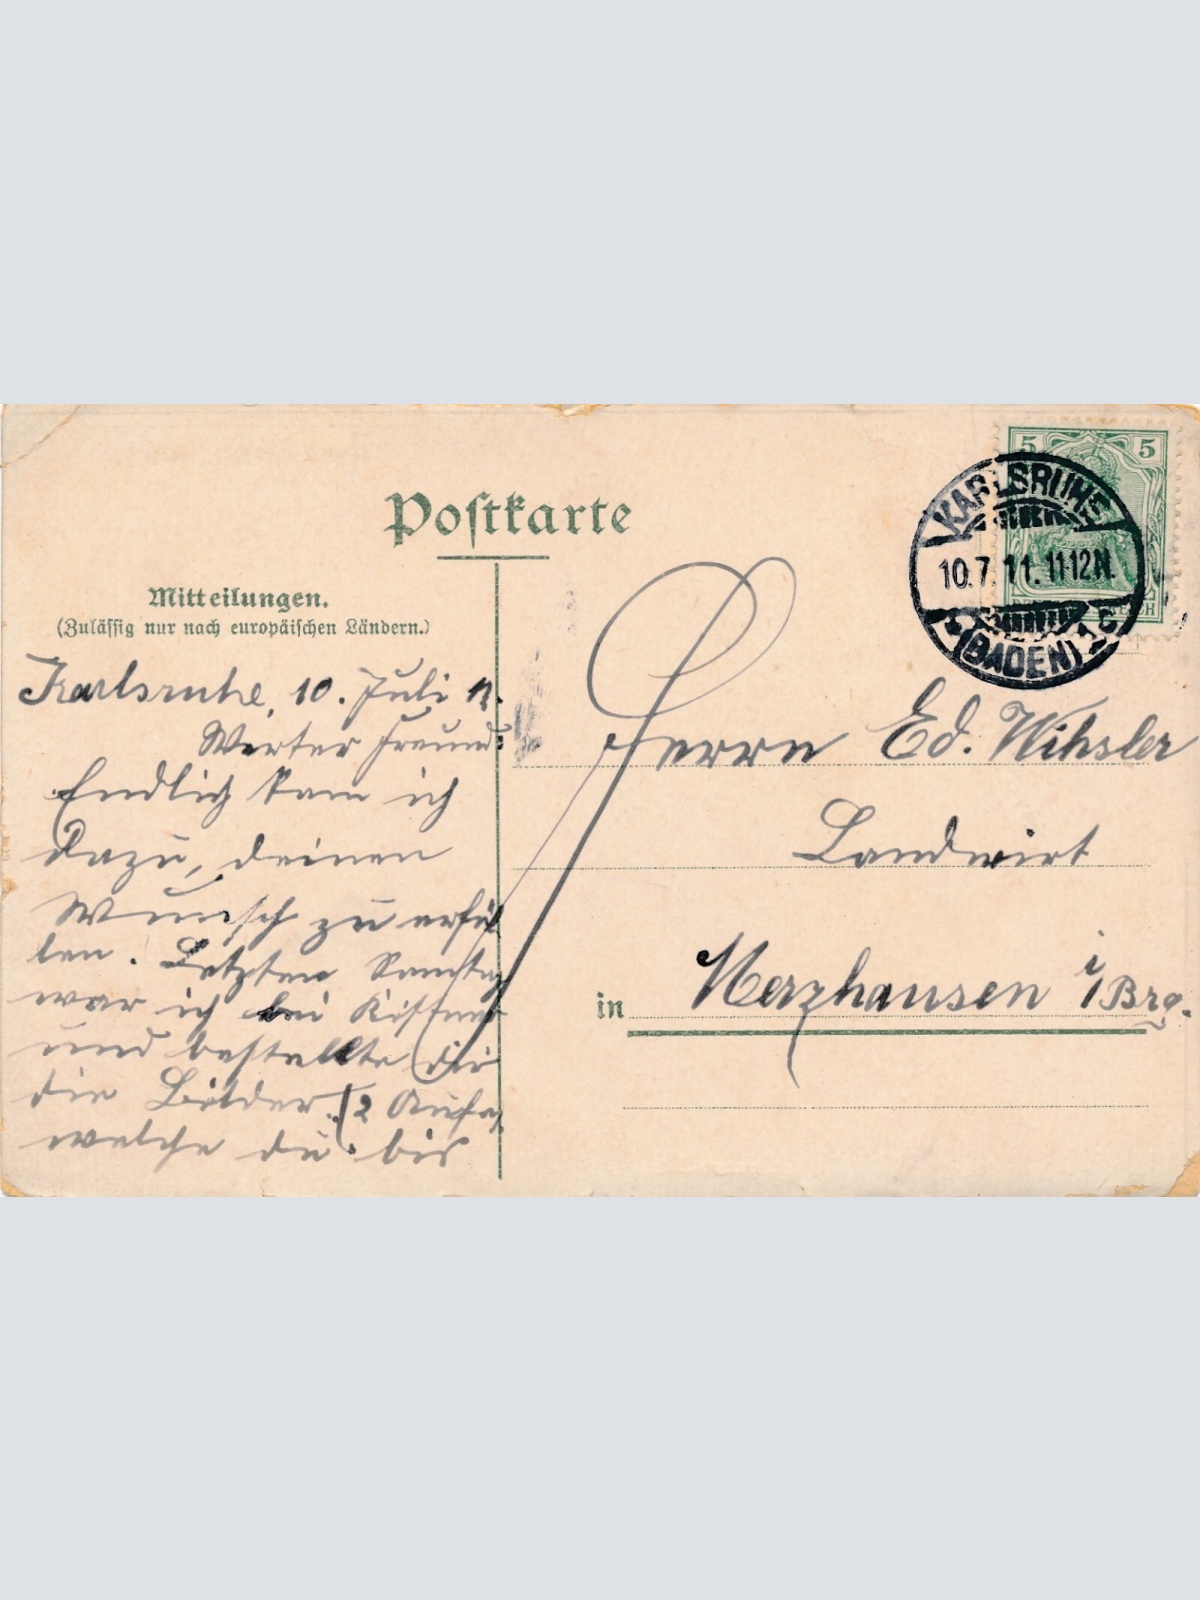 Postkarte
Mitteilungen.
(Zulässig nur nach europäischen Ländern.)
Karlsruhe, 10. Juli 11.
Werter Freund!
Endlich kam ich
dazu, deinen
Wunsch zu erfül
len. Letzten Samstag
war ich bei Kistner
und bestellte dir
die Bilder. (2 Aufn.
welche du bis
5 5
KARLSRUHE
10.7.11. 11-12N.
* (BADEN) * c
Herrn Ed.
Landwirt
in Merzhausen i/Brg.